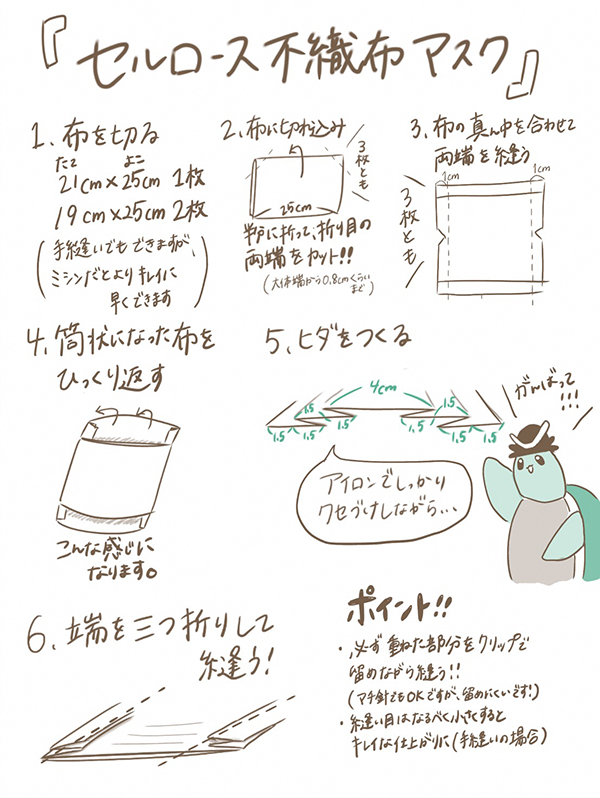 『セルロース不織布マスク』
1、布を切る
たて よこ
21cm×25cm 1枚
19cm×25cm 2枚
(手縫いでもできますが、
ミシンだとよりキレイに
早くできます)
2、布に切れ込み
3枚とも
25cm
半分に折って、折り目の
両端をカット!!
(大体端から0.8cmくらい
まで)
3、布の真ん中を合わせて
両端を縫う
1cm 1cm
3枚とも
4、筒状になった布を
ひっくり返す
こんな感じに
なります。
5、ヒダをつくる
4cm
1.5 1.5
1.5 1.5 1.5 1.5 1.5 1.5
アイロンでしっかり
クセづけしながら...
がんばって
!!!
6、端を三つ折りして
縫う!
ポイント!!
・必ず重ねた部分をクリップで
留めながら縫う!!
(マチ針でもOKですが、留めにくいです!)
・縫い目はなるべく小さくすると
キレイな仕上がりに(手縫いの場合)